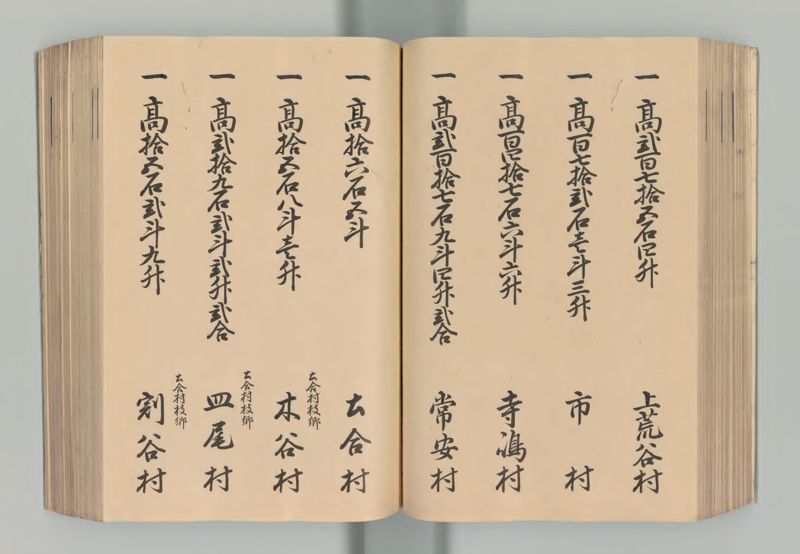 一 高弐百七拾五石四升 上荒谷村
一 高百七拾弐石壱斗三升 市村
一 高百四拾七石六斗六升 寺嶋村
一 高弐百拾七石九斗四升弐合 常安村
一 高拾六石五斗 土合村
一 高拾五石八斗壱升 土合村枝郷 木谷村
一 高弐拾九石弐斗弐升弐合 土合村枝郷 皿尾村
一 高拾五石弐斗九升 土合村枝郷 割谷村